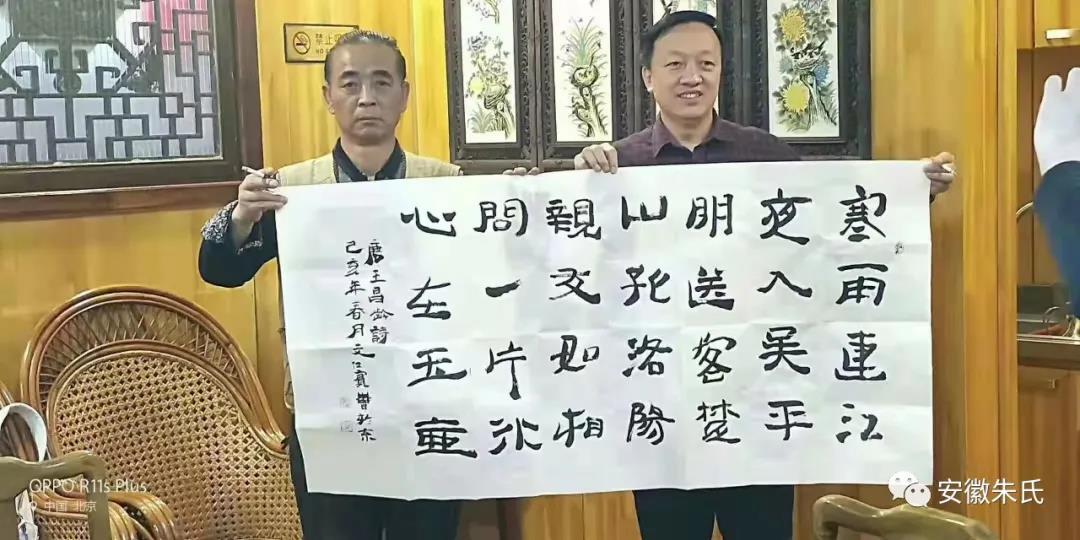 禁止
寒雨連江
夜入吴平
明送客楚
山孤洛陽
親友如相
問一片冰
心在玉壺
唐王昌龄詩
己亥年春月文仁寬書於京
OPPO R11s Plus
中国 北京
安徽朱氏